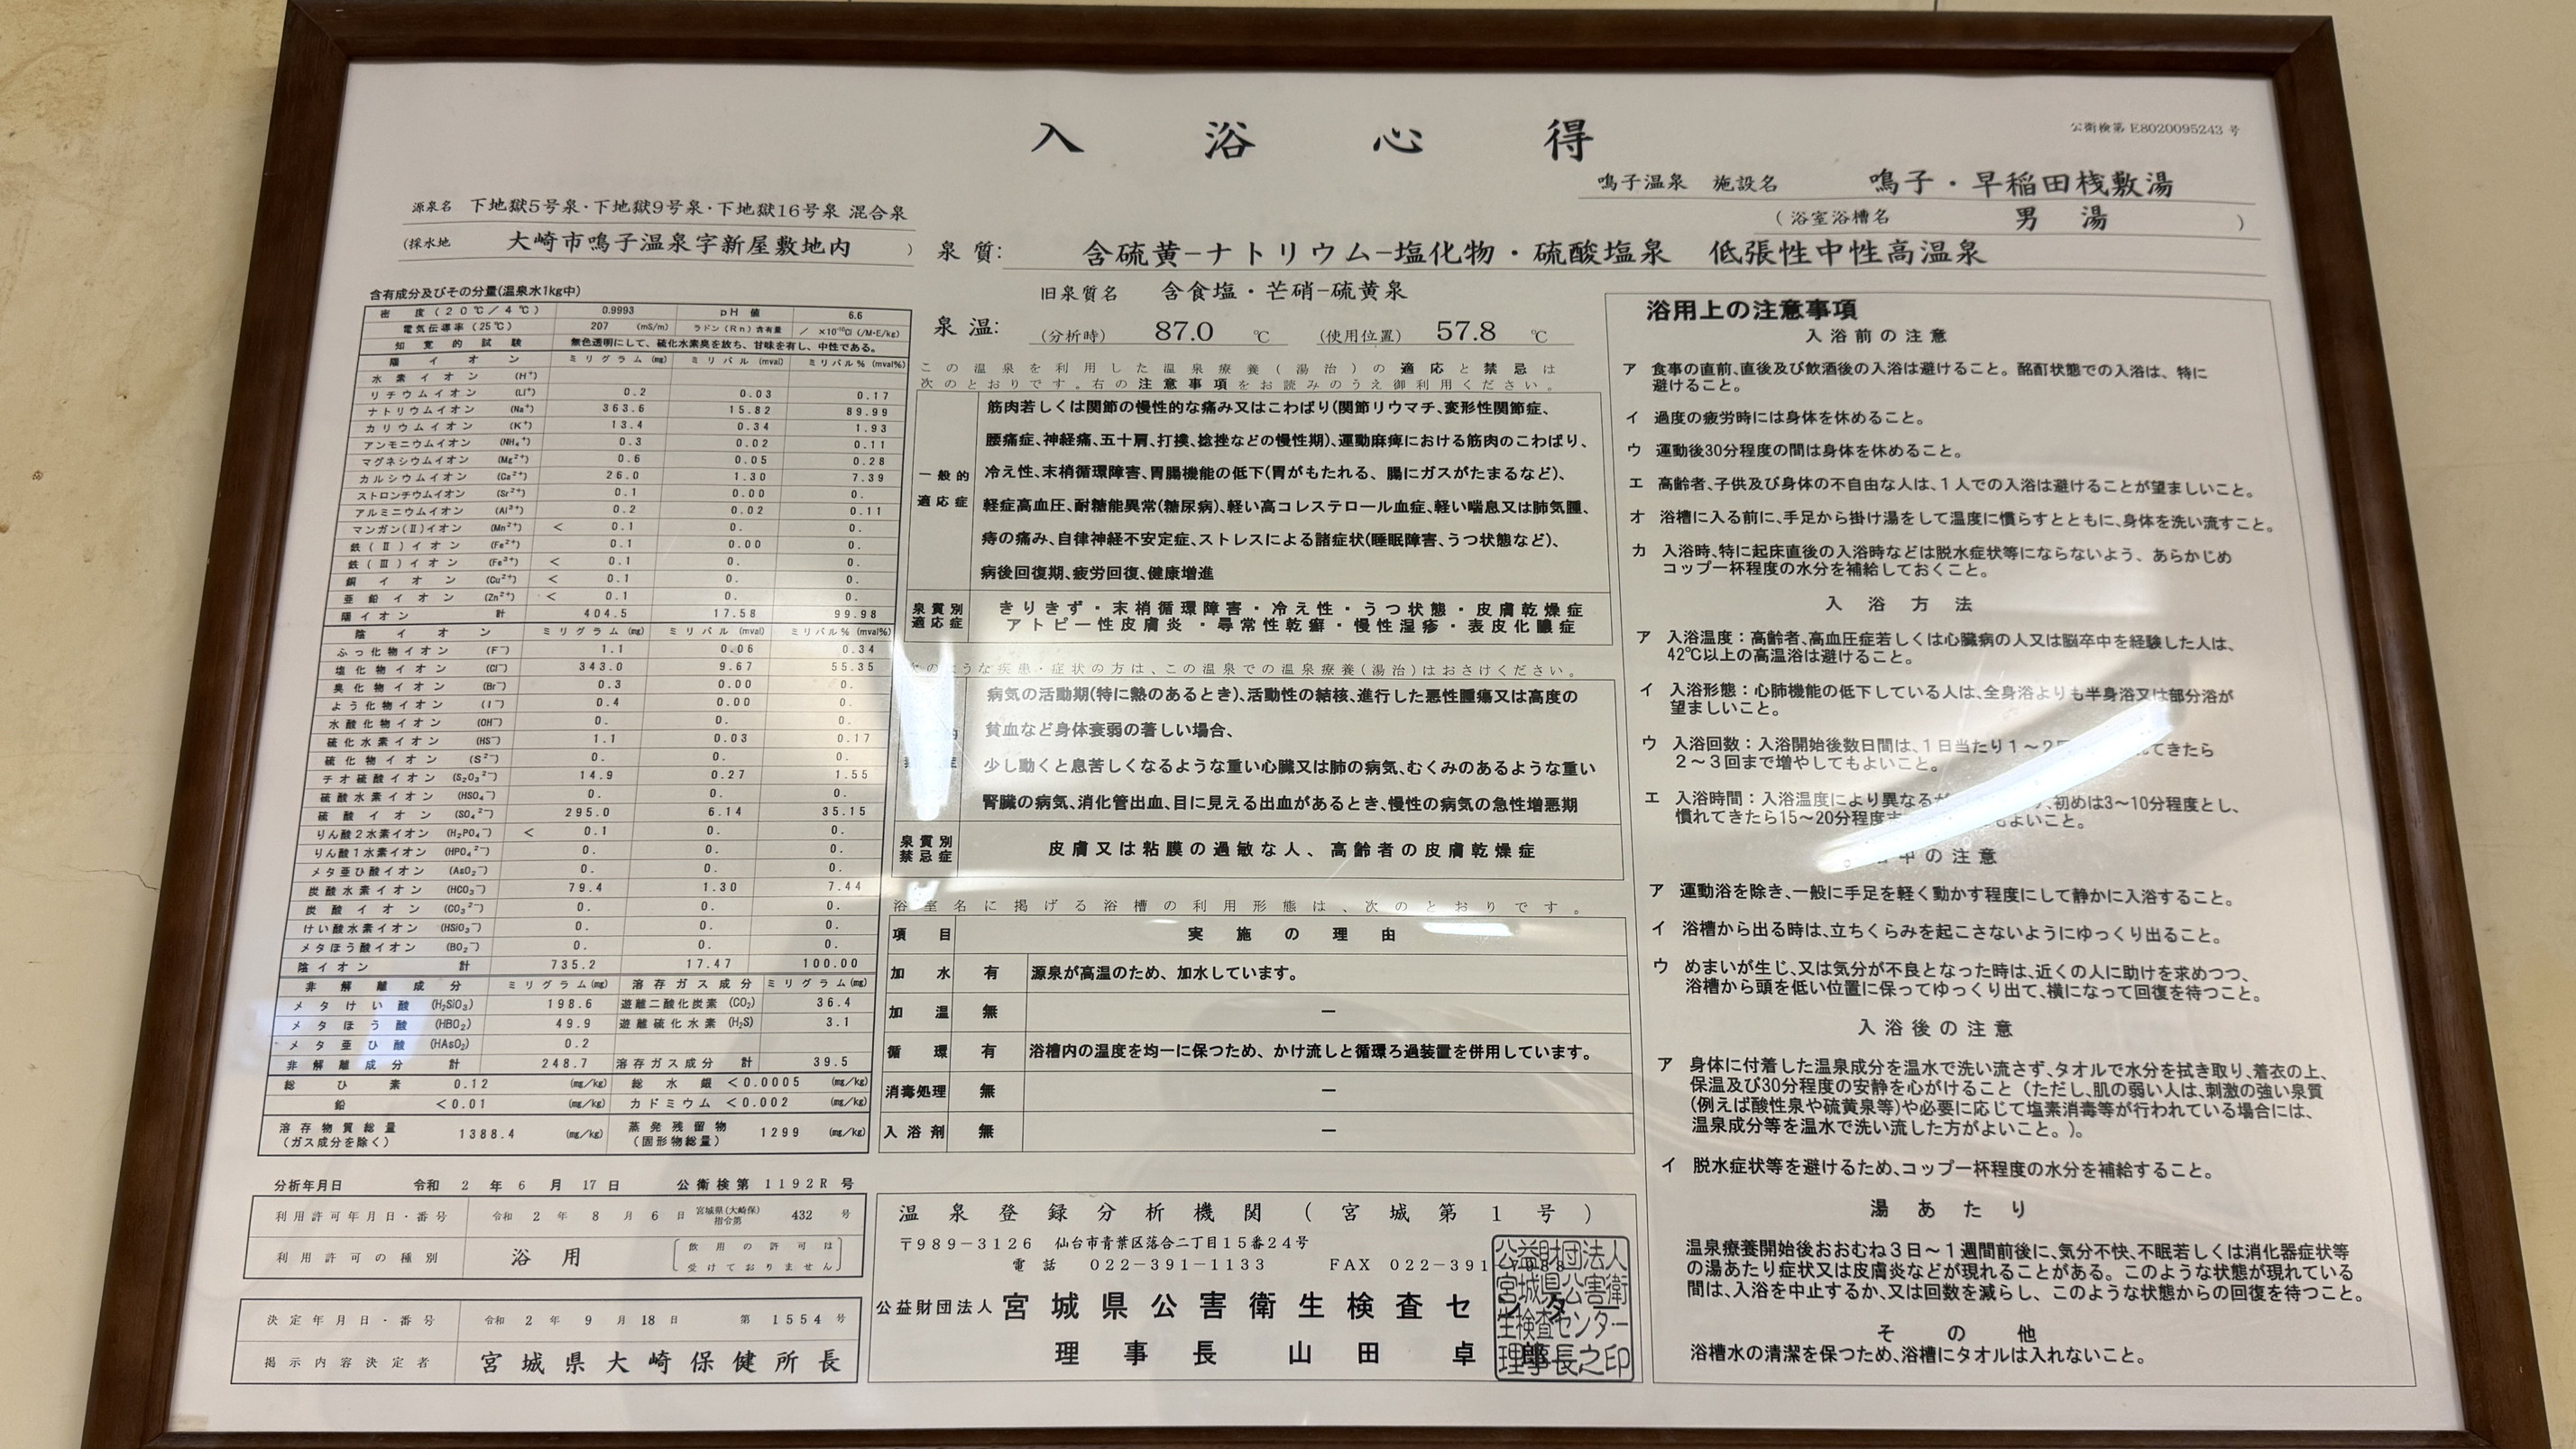 入浴心得
公衛検第 E8020095243 号
源泉名 下地獄5号泉・下地獄9号泉・下地獄16号泉 混合泉
(採水地 大崎市鳴子温泉字新屋敷地内 )
鳴子温泉 施設名 鳴子・早稲田桟敷湯
(浴室浴槽名 男湯 )
泉質: 含硫黄-ナトリウム-塩化物・硫酸塩泉 低張性中性高温泉
旧泉質名 含食塩・芒硝-硫黄泉
泉温: (分析時) 87.0 ℃ (使用位置) 57.8 ℃
含有成分及びその分量(温泉水1kg中)
密度(20℃/4℃) 0.9993 pH値 6.6
電気伝導率(25℃) 207 (mS/m) ラドン(Rn)含有量 / ×10⁻¹⁰Ci(/M·E/kg)
知覚的試験 無色透明にして、硫化水素臭を放ち、甘味を有し、中性である。
陽イオン ミリグラム(mg) ミリバル(mval) ミリバル%(mval%)
水素イオン (H⁺)
リチウムイオン (Li⁺) 0.2 0.03 0.17
ナトリウムイオン (Na⁺) 363.6 15.82 89.99
カリウムイオン (K⁺) 13.4 0.34 1.93
アンモニウムイオン (NH₄⁺) 0.3 0.02 0.11
マグネシウムイオン (Mg²⁺) 0.6 0.05 0.28
カルシウムイオン (Ca²⁺) 26.0 1.30 7.39
ストロンチウムイオン (Sr²⁺) 0.1 0.00 0.
アルミニウムイオン (Al³⁺) 0.2 0.02 0.11
マンガン(Ⅱ)イオン (Mn²⁺) < 0.1 0. 0.
鉄(Ⅱ)イオン (Fe²⁺) 0.1 0.00 0.
鉄(Ⅲ)イオン (Fe³⁺) < 0.1 0. 0.
銅イオン (Cu²⁺) < 0.1 0. 0.
亜鉛イオン (Zn²⁺) < 0.1 0. 0.
陽イオン 計 404.5 17.58 99.98
陰イオン ミリグラム(mg) ミリバル(mval) ミリバル%(mval%)
ふっ化物イオン (F⁻) 1.1 0.06 0.34
塩化物イオン (Cl⁻) 343.0 9.67 55.35
臭化物イオン (Br⁻) 0.3 0.00 0.
よう化物イオン (I⁻) 0.4 0.00 0.
水酸化物イオン (OH⁻) 0. 0. 0.
硫化水素イオン (HS⁻) 1.1 0.03 0.17
硫化物イオン (S²⁻) 0. 0. 0.
チオ硫酸イオン (S₂O₃²⁻) 14.9 0.27 1.55
硫酸水素イオン (HSO₄⁻) 0. 0. 0.
硫酸イオン (SO₄²⁻) 295.0 6.14 35.15
りん酸2水素イオン (H₂PO₄⁻) < 0.1 0. 0.
りん酸1水素イオン (HPO₄²⁻) 0. 0. 0.
メタ亜ひ酸イオン (AsO₂⁻) 0. 0. 0.
炭酸水素イオン (HCO₃⁻) 79.4 1.30 7.44
炭酸イオン (CO₃²⁻) 0. 0. 0.
けい酸水素イオン (HSiO₃⁻) 0. 0. 0.
メタほう酸イオン (BO₂⁻) 0. 0. 0.
陰イオン 計 735.2 17.47 100.00
非解離成分 ミリグラム(mg) 溶存ガス成分 ミリグラム(mg)
メタけい酸 (H₂SiO₃) 198.6 遊離二酸化炭素 (CO₂) 36.4
メタほう酸 (HBO₂) 49.9 遊離硫化水素 (H₂S) 3.1
メタ亜ひ酸 (HAsO₂) 0.2
非解離成分 計 248.7 溶存ガス成分 計 39.5
総ひ素 0.12 (mg/kg) 総水銀 <0.0005 (mg/kg)
鉛 <0.01 (mg/kg) カドミウム <0.002 (mg/kg)
溶存物質総量(ガス成分を除く) 1388.4 (mg/kg) 蒸発残留物(固形物総量) 1299 (mg/kg)
分析年月日 令和 2 年 6 月 17 日 公衛検第 1192R 号
利用許可年月日・番号 令和 2 年 8 月 6 日 宮城県(大崎保)指令第 432 号
利用許可の種別 浴用 [飲用の許可は受けておりません]
決定年月日・番号 令和 2 年 9 月 18 日 第 1554 号
掲示内容決定者 宮城県大崎保健所長
この温泉を利用した温泉療養(湯治)の適応と禁忌は
次のとおりです。右の注意事項をお読みのうえ御利用ください。
一般的適応症
筋肉若しくは関節の慢性的な痛み又はこわばり(関節リウマチ、変形性関節症、
腰痛症、神経痛、五十肩、打撲、捻挫などの慢性期)、運動麻痺における筋肉のこわばり、
冷え性、末梢循環障害、胃腸機能の低下(胃がもたれる、腸にガスがたまるなど)、
軽症高血圧、耐糖能異常(糖尿病)、軽い高コレステロール血症、軽い喘息又は肺気腫、
痔の痛み、自律神経不安定症、ストレスによる諸症状(睡眠障害、うつ状態など)、
病後回復期、疲労回復、健康増進
泉質別適応症
きりきず・末梢循環障害・冷え性・うつ状態・皮膚乾燥症
アトピー性皮膚炎・尋常性乾癬・慢性湿疹・表皮化膿症
のような疾患・症状の方は、この温泉での温泉療養(湯治)はおさけください。
的
症
病気の活動期(特に熱のあるとき)、活動性の結核、進行した悪性腫瘍又は高度の
貧血など身体衰弱の著しい場合、
少し動くと息苦しくなるような重い心臓又は肺の病気、むくみのあるような重い
腎臓の病気、消化管出血、目に見える出血があるとき、慢性の病気の急性増悪期
泉質別禁忌症
皮膚又は粘膜の過敏な人、高齢者の皮膚乾燥症
浴室名に掲げる浴槽の利用形態は、次のとおりです。
項目 実施の理由
加水 有 源泉が高温のため、加水しています。
加温 無 ―
循環 有 浴槽内の温度を均一に保つため、かけ流しと循環ろ過装置を併用しています。
消毒処理 無 ―
入浴剤 無 ―
温泉登録分析機関(宮城第1号)
〒989-3126 仙台市青葉区落合二丁目15番24号
電話 022-391-1133 FAX 022-391
公益財団法人 宮城県公害衛生検査センター
理事長 山田 卓郎
公益財団法人
宮城県公害衛
生検査センター
理事長之印
浴用上の注意事項
入浴前の注意
ア 食事の直前、直後及び飲酒後の入浴は避けること。酩酊状態での入浴は、特に
避けること。
イ 過度の疲労時には身体を休めること。
ウ 運動後30分程度の間は身体を休めること。
エ 高齢者、子供及び身体の不自由な人は、1人での入浴は避けることが望ましいこと。
オ 浴槽に入る前に、手足から掛け湯をして温度に慣らすとともに、身体を洗い流すこと。
カ 入浴時、特に起床直後の入浴時などは脱水症状等にならないよう、あらかじめ
コップ一杯程度の水分を補給しておくこと。
入浴方法
ア 入浴温度:高齢者、高血圧症若しくは心臓病の人又は脳卒中を経験した人は、
42℃以上の高温浴は避けること。
イ 入浴形態:心肺機能の低下している人は、全身浴よりも半身浴又は部分浴が
望ましいこと。
ウ 入浴回数:入浴開始後数日間は、1日当たり1～2 てきたら
2～3回まで増やしてもよいこと。
エ 入浴時間:入浴温度により異なるが 、初めは3～10分程度とし、
慣れてきたら15～20分程度 よいこと。
中の注意
ア 運動浴を除き、一般に手足を軽く動かす程度にして静かに入浴すること。
イ 浴槽から出る時は、立ちくらみを起こさないようにゆっくり出ること。
ウ めまいが生じ、又は気分が不良となった時は、近くの人に助けを求めつつ、
浴槽から頭を低い位置に保ってゆっくり出て、横になって回復を待つこと。
入浴後の注意
ア 身体に付着した温泉成分を温水で洗い流さず、タオルで水分を拭き取り、着衣の上、
保温及び30分程度の安静を心がけること(ただし、肌の弱い人は、刺激の強い泉質
(例えば酸性泉や硫黄泉等)や必要に応じて塩素消毒等が行われている場合には、
温泉成分等を温水で洗い流した方がよいこと。)。
イ 脱水症状等を避けるため、コップ一杯程度の水分を補給すること。
湯あたり
温泉療養開始後おおむね3日～1週間前後に、気分不快、不眠若しくは消化器症状等
の湯あたり症状又は皮膚炎などが現れることがある。このような状態が現れている
間は、入浴を中止するか、又は回数を減らし、このような状態からの回復を待つこと。
その他
浴槽水の清潔を保つため、浴槽にタオルは入れないこと。